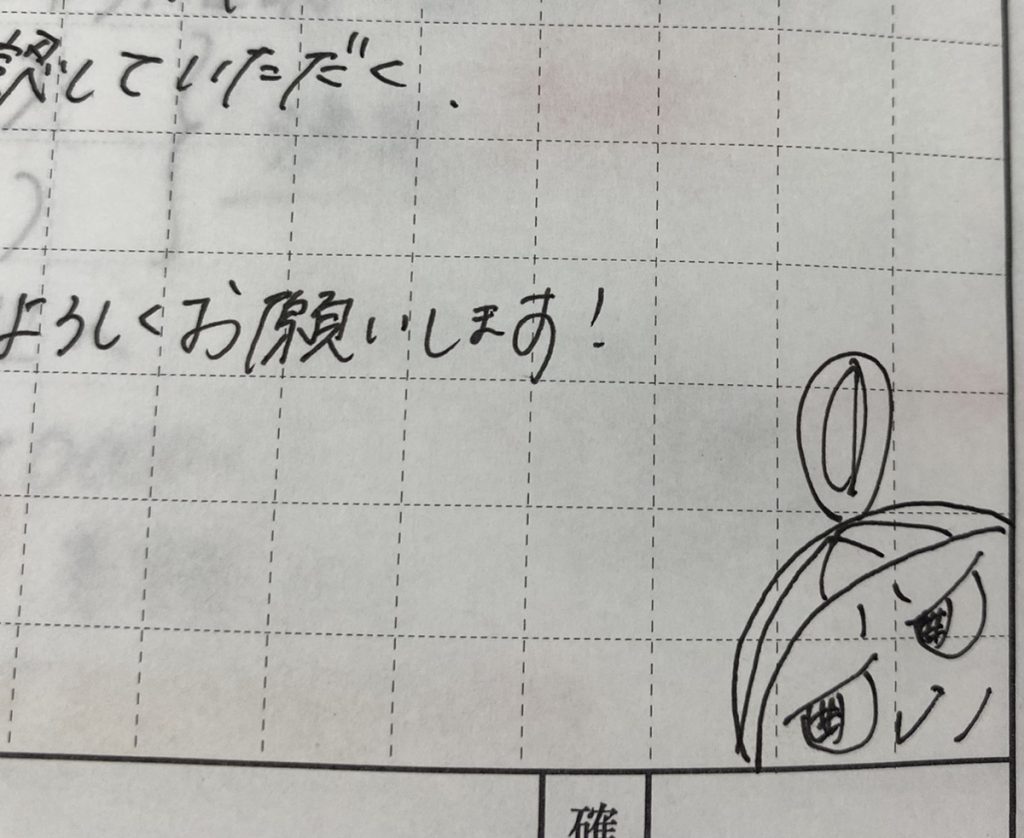 認していただく.
よろしくお願いします!
確